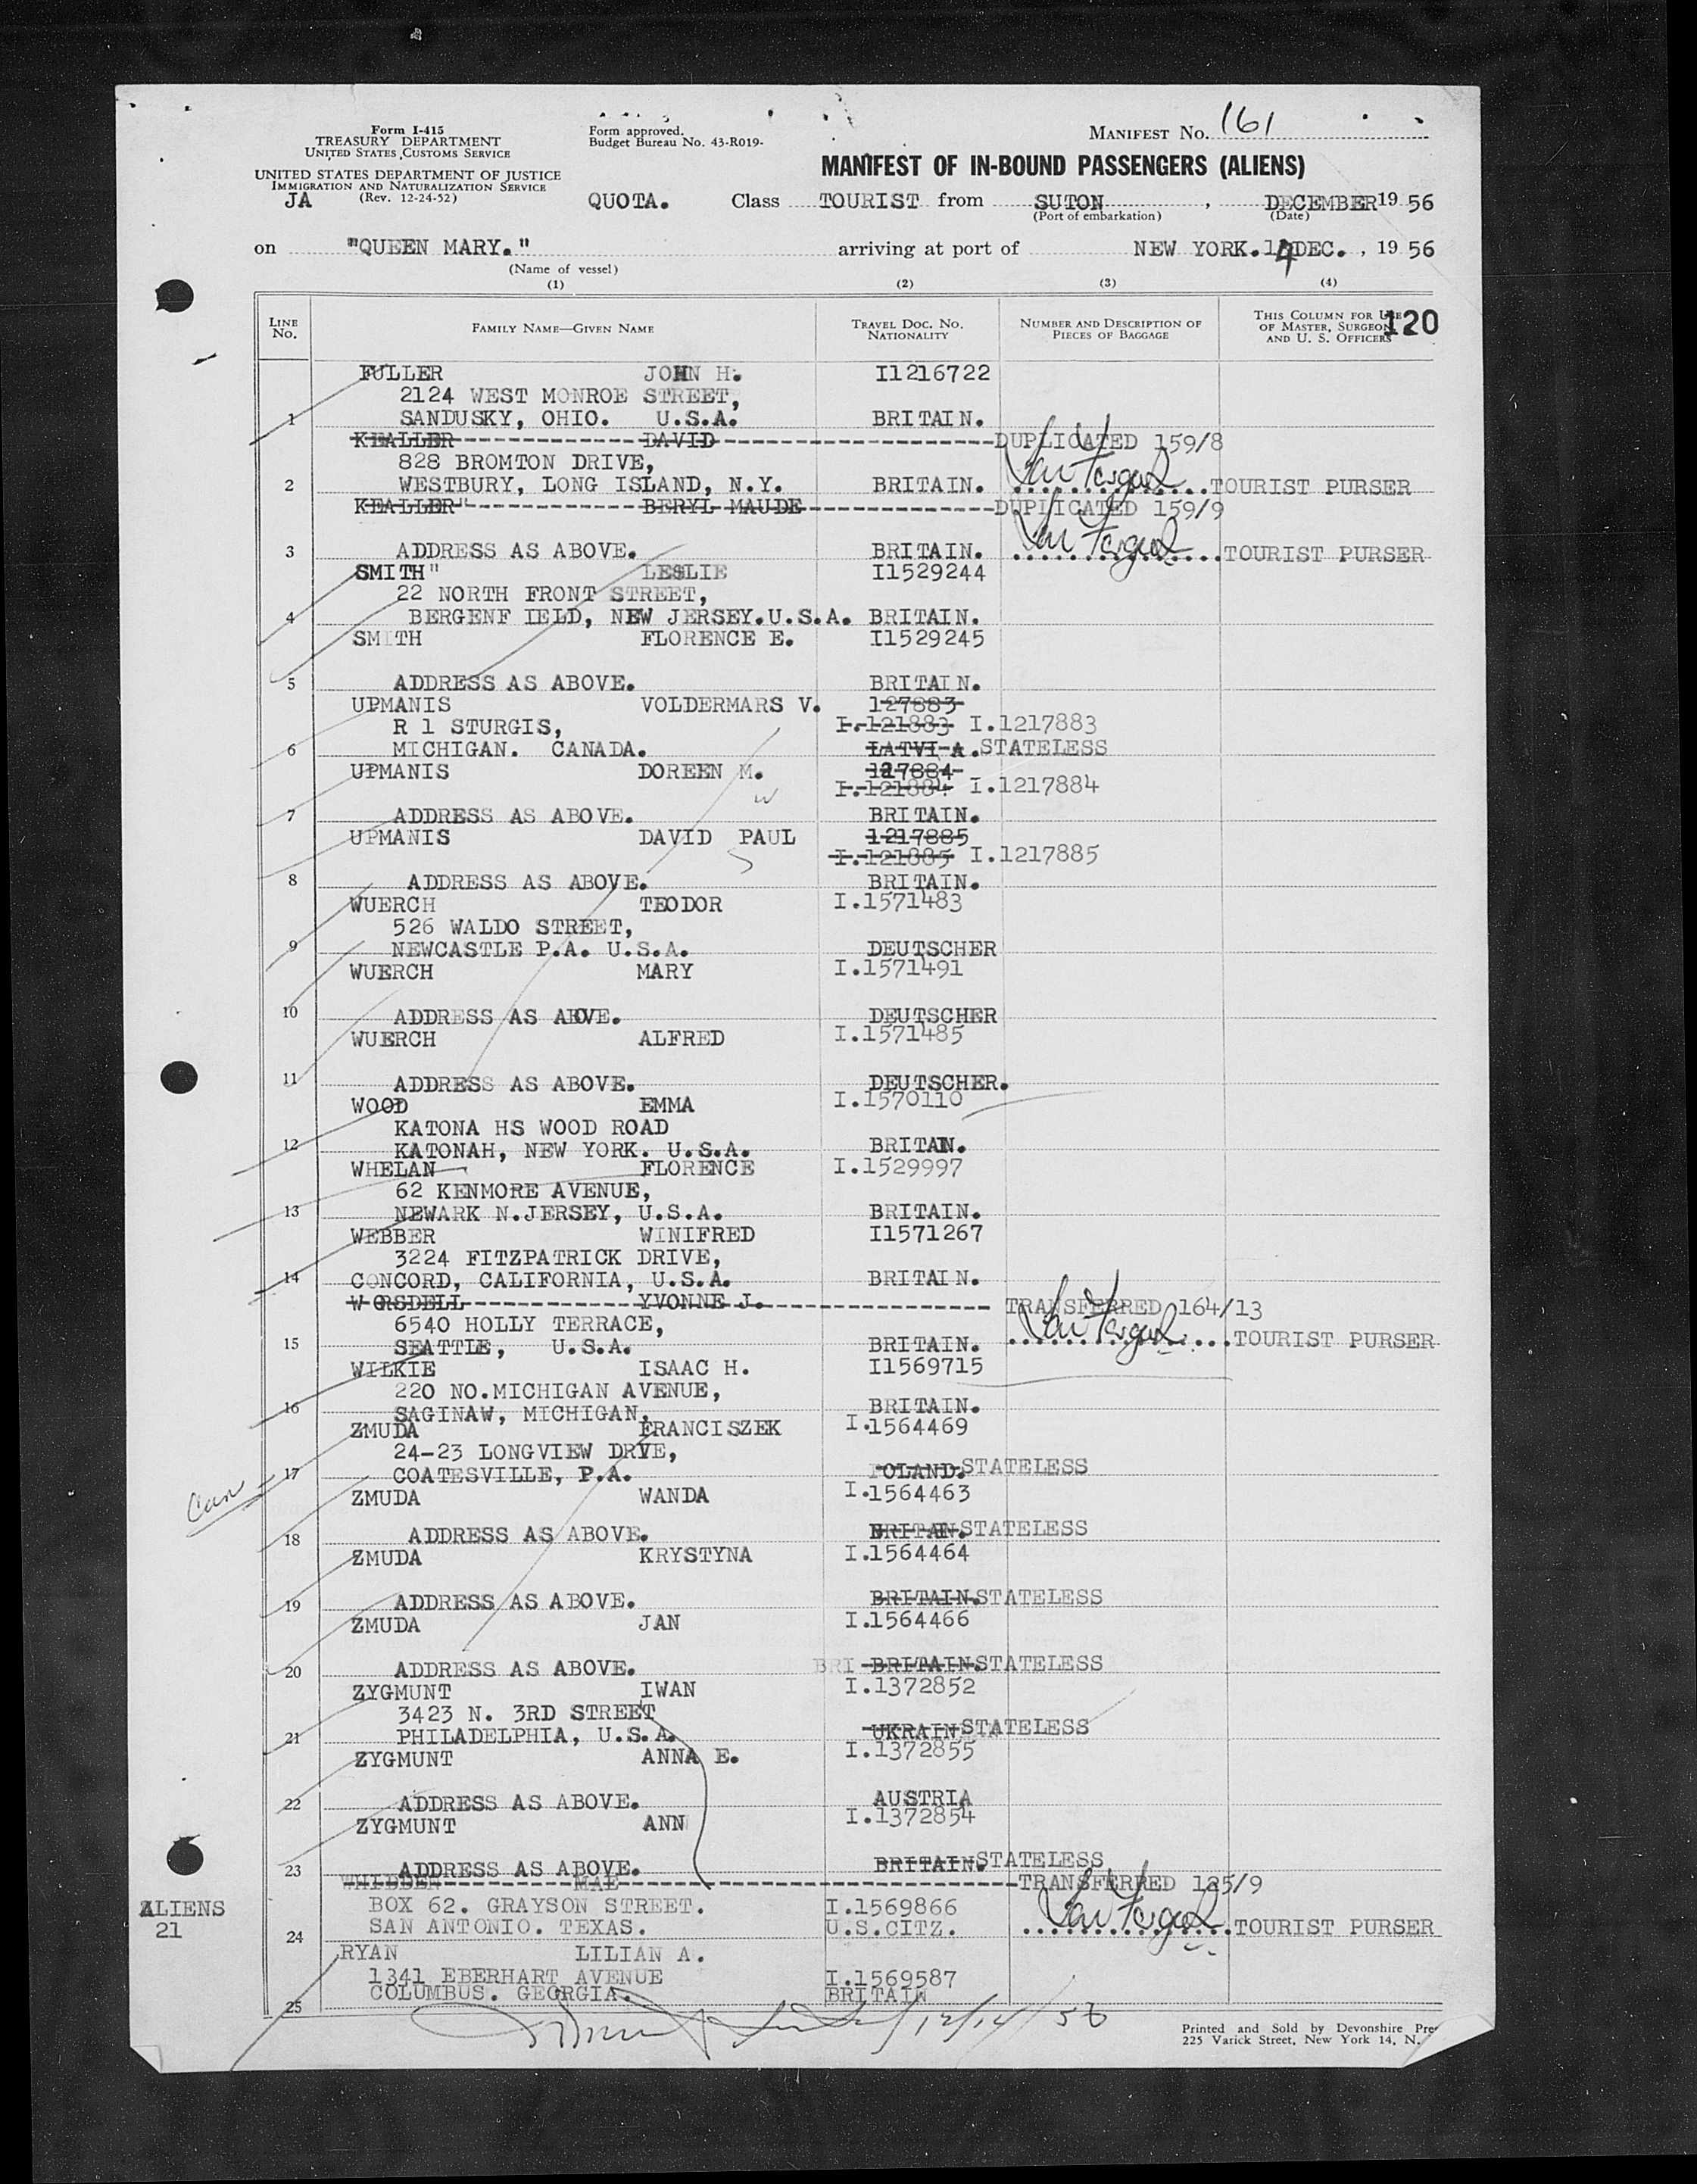 Form I-415
TREASURY DEPARTMENT
UNITED STATES CUSTOMS SERVICE
UNITED STATES DEPARTMENT OF JUSTICE
IMMIGRATION AND NATURALIZATION SERVICE
(Rev. 12-24-52)
JA
Form approved.
Budget Bureau No. 43-R019-
MANIFEST No. 161
MANIFEST OF IN-BOUND PASSENGERS (ALIENS)
QUOTA. Class TOURIST from SUTON , DECEMBER 19 56
(Port of embarkation) (Date)
on "QUEEN MARY." arriving at port of NEW YORK. 14 DEC. , 19 56
(Name of vessel)
(1) (2) (3) (4)
LINE No. FAMILY NAME—GIVEN NAME TRAVEL DOC. No. NATIONALITY NUMBER AND DESCRIPTION OF PIECES OF BAGGAGE THIS COLUMN FOR USE OF MASTER, SURGEON AND U. S. OFFICERS
120
FULLER JOHN H. I1216722
2124 WEST MONROE STREET,
1 SANDUSKY, OHIO. U.S.A. BRITAIN.
KEALLER DAVID DUPLICATED 159/8
828 BROMTON DRIVE,
2 WESTBURY, LONG ISLAND, N.Y. BRITAIN. TOURIST PURSER
KEALLER" BERYL MAUDE DUPLICATED 159/9
3 ADDRESS AS ABOVE. BRITAIN. TOURIST PURSER
SMITH" LESLIE I1529244
22 NORTH FRONT STREET,
4 BERGENF IELD, NEW JERSEY.U.S.A. BRITAIN.
SMITH FLORENCE E. I1529245
5 ADDRESS AS ABOVE. BRITAIN.
UPMANIS VOLDERMARS V. 127883
R 1 STURGIS, I.121883 I.1217883
6 MICHIGAN. CANADA. LATVI A.STATELESS
UPMANIS DOREEN M. 127884
I.121884 I.1217884
7 ADDRESS AS ABOVE. BRITAIN.
UPMANIS DAVID PAUL 1217885
I.121885 I.1217885
8 ADDRESS AS ABOVE. BRITAIN.
WUERCH TEODOR I.1571483
526 WALDO STREET,
9 NEWCASTLE P.A. U.S.A. DEUTSCHER
WUERCH MARY I.1571491
10 ADDRESS AS ABOVE. DEUTSCHER
WUERCH ALFRED I.1571485
11 ADDRESS AS ABOVE. DEUTSCHER.
WOOD EMMA I.1570110
KATONA HS WOOD ROAD
12 KATONAH, NEW YORK. U.S.A. BRITAIN.
WHELAN FLORENCE I.1529997
62 KENMORE AVENUE,
13 NEWARK N.JERSEY, U.S.A. BRITAIN.
WEBBER WINIFRED I1571267
3224 FITZPATRICK DRIVE,
14 CONCORD, CALIFORNIA, U.S.A. BRITAIN.
WORSDELL YVONNE J. TRANSFERRED 164/13
6540 HOLLY TERRACE,
15 SEATTLE, U.S.A. BRITAIN. TOURIST PURSER
WILKIE ISAAC H. I1569715
220 NO.MICHIGAN AVENUE,
16 SAGINAW, MICHIGAN. BRITAIN.
ZMUDA FRANCISZEK I.1564469
24-23 LONGVIEW DRVE,
17 COATESVILLE, P.A. POLAND.STATELESS
ZMUDA WANDA I.1564463
18 ADDRESS AS ABOVE. BRITAIN.STATELESS
ZMUDA KRYSTYNA I.1564464
19 ADDRESS AS ABOVE. BRITAIN.STATELESS
ZMUDA JAN I.1564466
20 ADDRESS AS ABOVE. BRI BRITAIN.STATELESS
ZYGMUNT IWAN I.1372852
3423 N. 3RD STREET
21 PHILADELPHIA, U.S.A. UKRAIN STATELESS
ZYGMUNT ANNA E. I.1372855
22 ADDRESS AS ABOVE. AUSTRIA
ZYGMUNT ANN I.1372854
23 ADDRESS AS ABOVE. BRITAIN.STATELESS
WHIDDEN MAE TRANSFERRED 125/9
BOX 62. GRAYSON STREET. I.1569866
24 SAN ANTONIO. TEXAS. U.S.CITZ. TOURIST PURSER
ALIENS
21
RYAN LILIAN A.
1341 EBERHART AVENUE I.1569587
25 COLUMBUS. GEORGIA. BRITAIN
12/14/56
Printed and Sold by Devonshire Pre
225 Varick Street, New York 14, N.